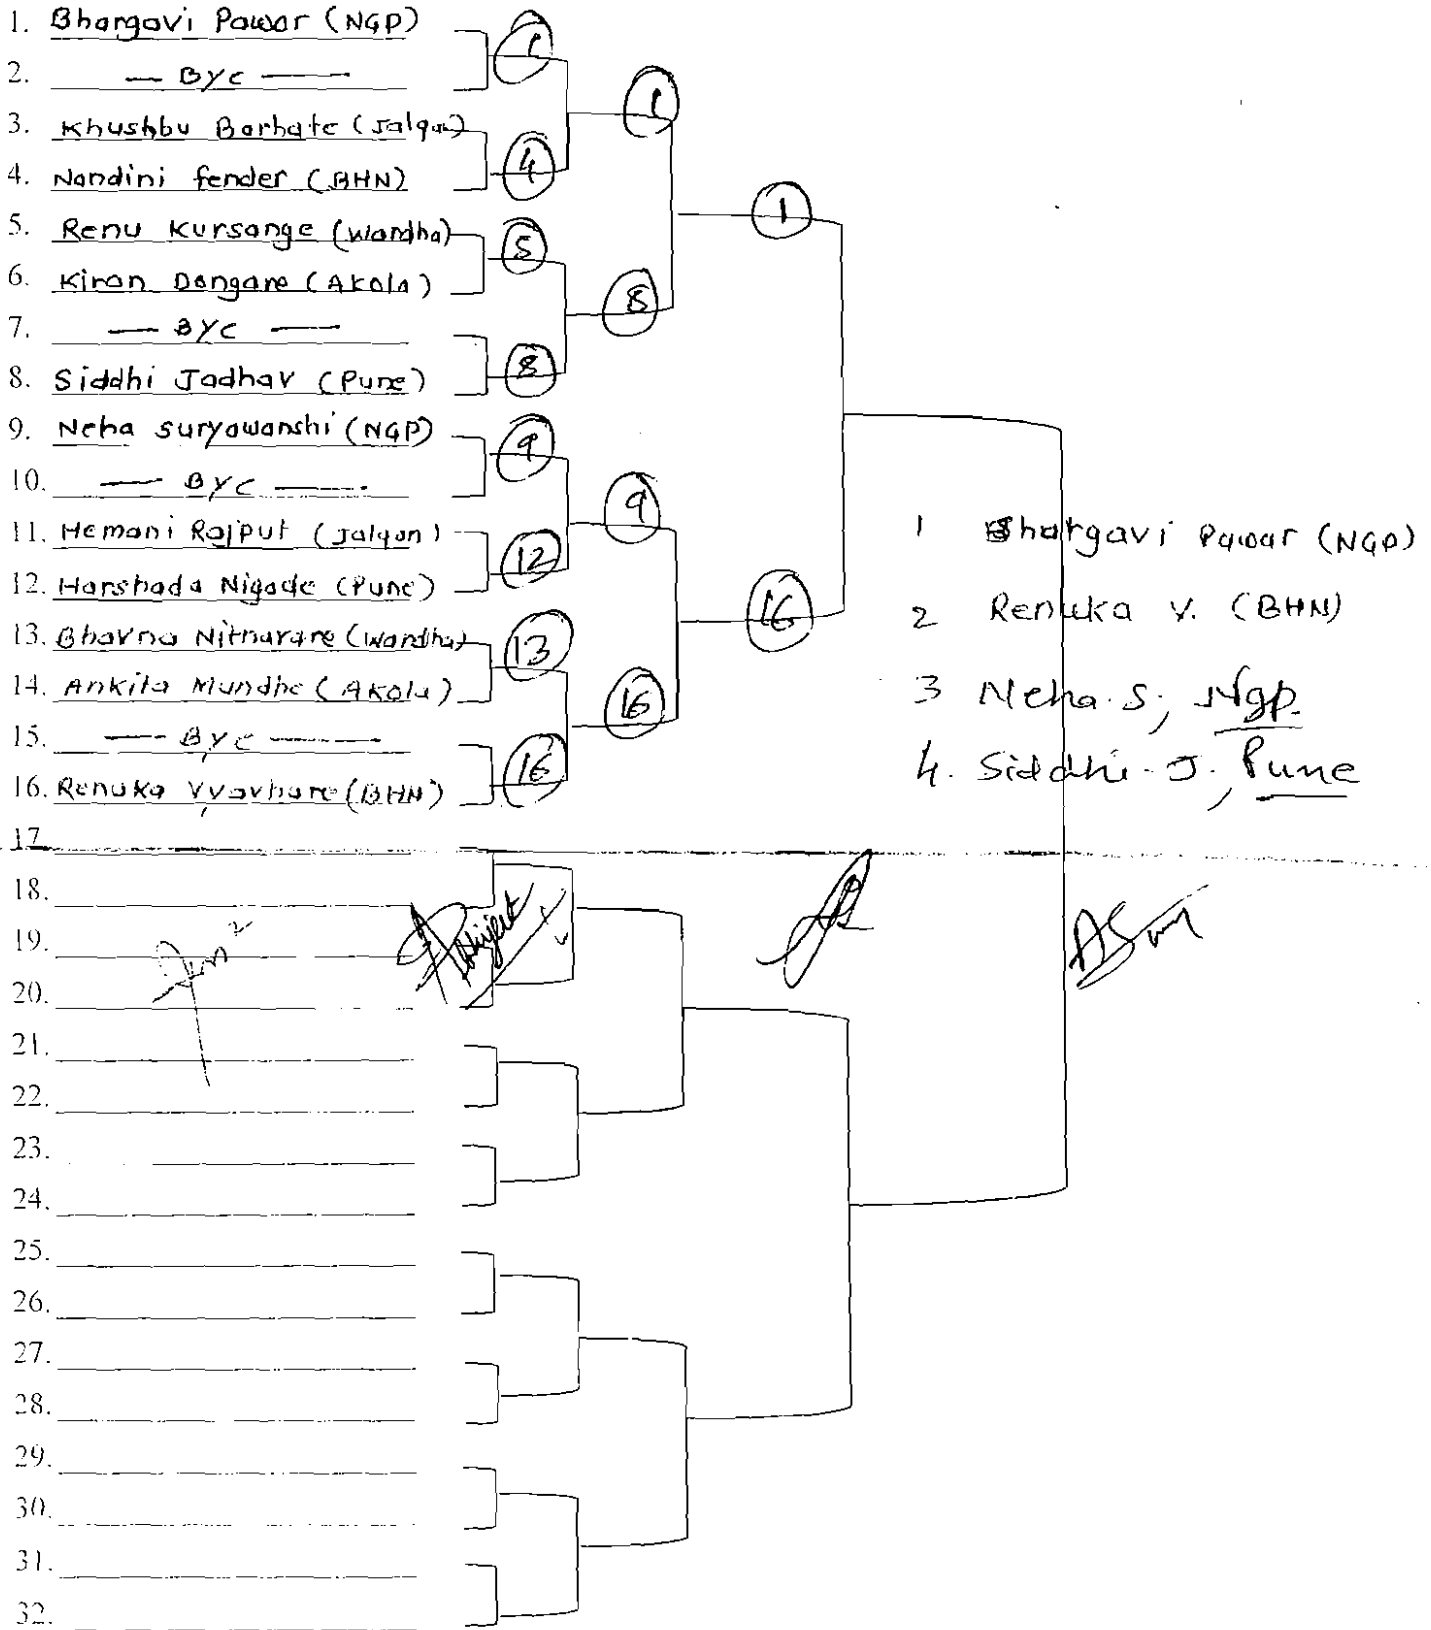 1. Bhargavi Pawar (NGP)
2. — Bye —
3. Khushbu Barhate (Jalgan)
4. Nandini fender (BHN)
5. Renu Kursange (Wardha)
6. Kiran Dongare (Akola)
7. — Bye —
8. Siddhi Jadhav (Pune)
9. Neha suryawanshi (NGP)
10. — Bye —
11. Hemani Rajput (Jalgan)
12. Harshada Nigade (Pune)
13. Bhavna Nitnavare (Wardha)
14. Ankita Mundhe (Akola)
15. — Bye —
16. Renuka Vyavhare (BHN)
17.
18.
19.
20.
21.
22.
23.
24.
25.
26.
27.
28.
29.
30.
31.
32.
1
4
5
8
9
12
13
16
1
8
9
16
1
16
1 Bhargavi Pawar (NGP)
2 Renuka V. (BHN)
3 Neha.S, Ngp.
4. Siddhi.J, Pune
Abhijeet